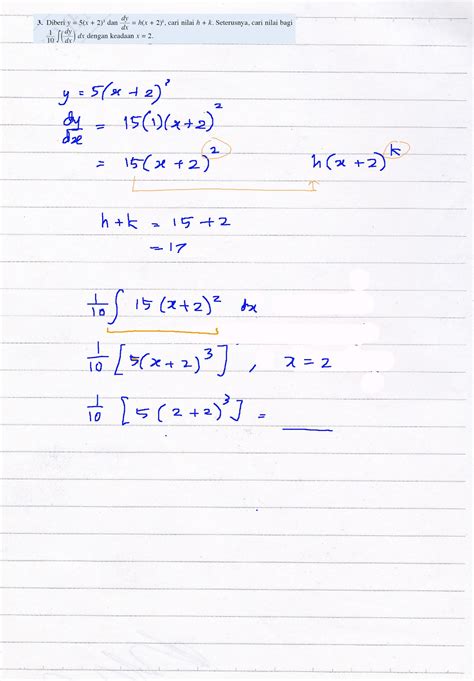 3. Diberi y = 5(x + 2)³ dan dy/dx = h(x + 2)ᵏ, cari nilai h + k. Seterusnya, cari nilai bagi
1/10 ∫(dy/dx) dx dengan keadaan x = 2.
y = 5(x + 2)³
dy/dx = 15(1)(x+2)²
= 15(x + 2)² h(x + 2)ᵏ
h + k = 15 + 2
= 17
1/10 ∫ 15 (x+2)² dx
1/10 [5(x + 2)³] , x = 2
1/10 [5(2 + 2)³] =